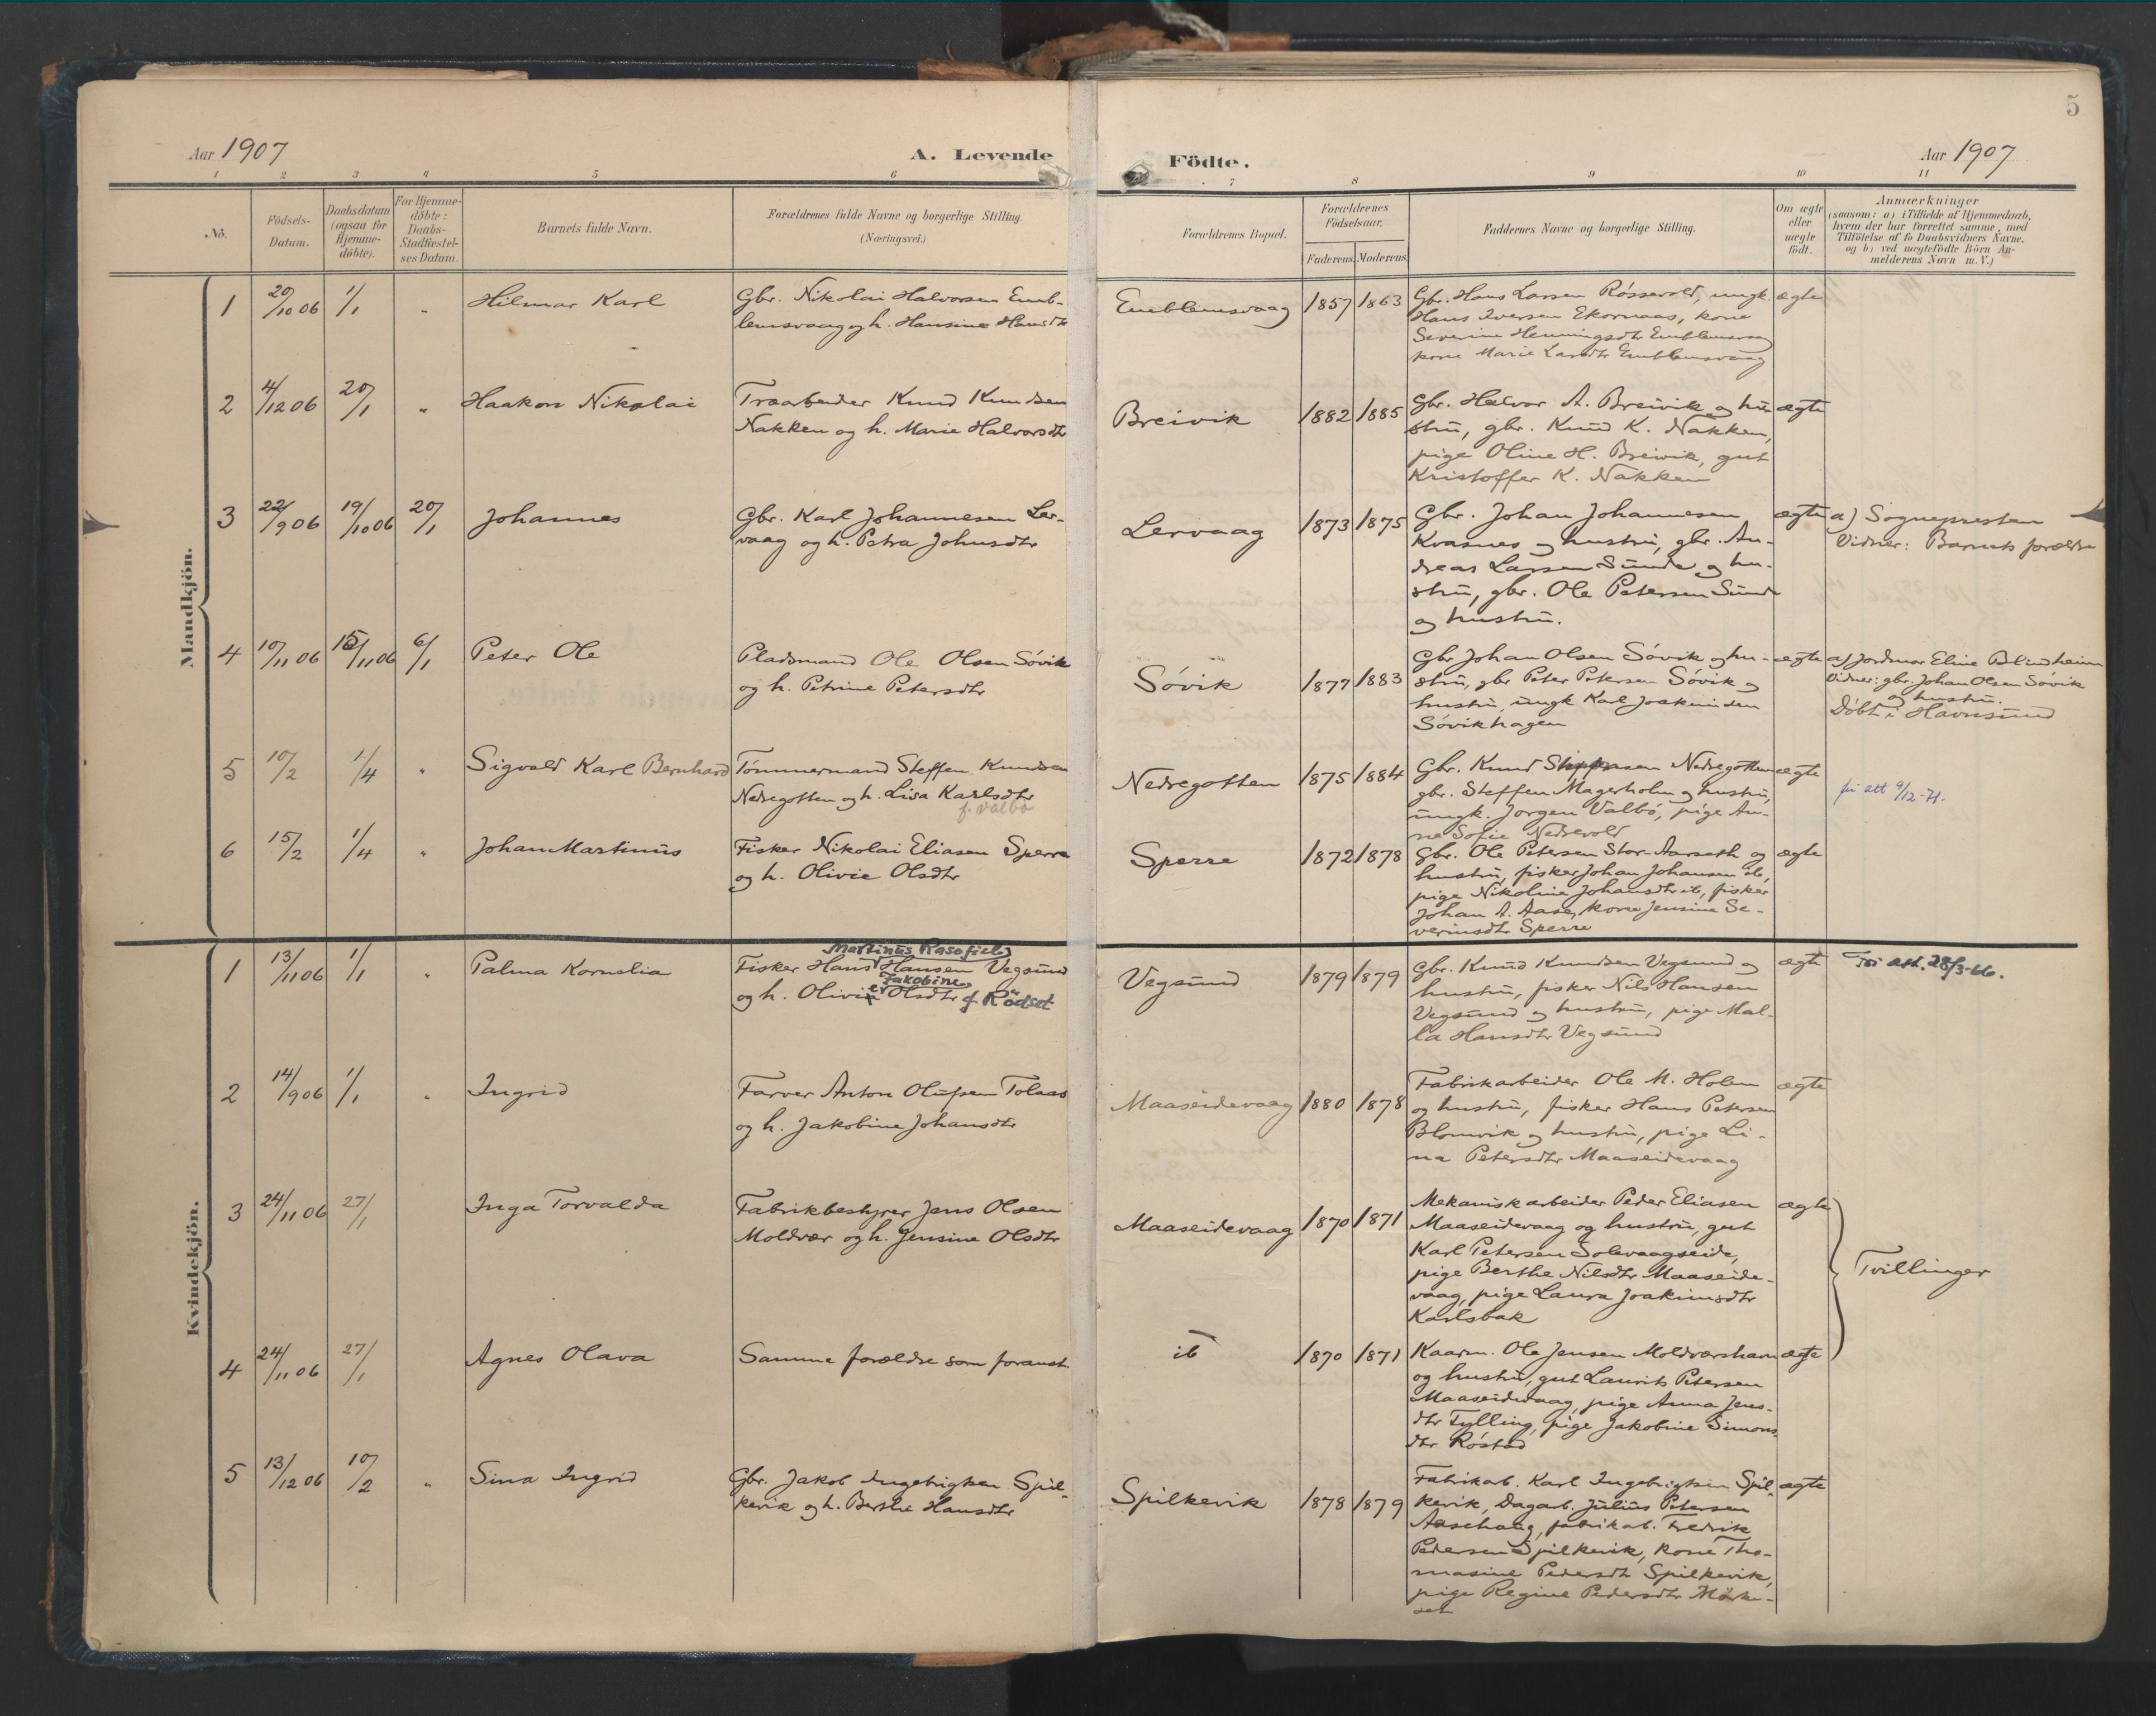 5
Aar 1907
A. Levende
Födte.
Aar 1907
1 2 3 4 5 6 7 8 9 10 11
Nö.
Födsels-
Datum.
Daabsdatum
(ogsaa for
Hjemme-
döbte).
For Hjemme-
döbte:
Daabs-
Stadfæstel-
ses Datum.
Barnets fulde Navn.
Forældrenes fulde Navne og borgerlige Stilling.
(Næringsvei.)
Forældrenes Bopæl.
Forældrenes
Födselsaar.
Faderens. Moderens.
Faddernes Navne og borgerlige Stilling.
Om ægte
eller
uægte
födt.
Anmærkninger
(saasom: a) i Tilfælde af Hjemmedaab,
hvem der har forrettet samme, med
Tilföielse af to Daabsvidners Navne.
og b) ved uægtefödte Börn An-
melderens Navn m. V.)
Mandkjön.
1 20/10 06 1/1 " Hilmar Karl
Gbr. Nikolai Halvorsen Emb-
lemsvaag og h. Hansine Hansdtr
Emblemsvaag 1857 1863
Gbr. Hans Larsen Røssevold, ungk.
Hans Iversen Ekornaas, kone
Severine Henningsdtr Emblemsvaag
kone Marie Larsdtr Emblemsvaag
ægte
2 4/12 06 20/1 " Haakon Nikolai
Træarbeider Knud Knudsen
Nakken og h. Marie Halvorsdtr
Breivik 1882 1885
Gbr. Halvor A. Breivik og hu-
stru, gbr. Knud K. Nakken,
pige Oline H. Breivik, gut
Kristoffer K. Nakken
ægte
3 22/9 06 19/10 06 20/1 Johannes
Gbr. Karl Johannesen Ler-
vaag og h. Petra Johnsdtr
Lervaag 1873 1875
Gbr. Johan Johannesen
Kvasnes og hustru, gbr. An-
dreas Larsen Sunde og hu-
stru, gbr. Ole Petersen Sunde
og hustru.
ægte
a) Sognepresten
Vidner: Barnets forældre
4 10/11 06 15/11 06 6/1 Peter Ole
Pladsmand Ole Olsen Søvik
og h. Petrine Petersdtr
Søvik 1877 1883
Gbr Johan Olsen Søvik og hu-
stru, gbr Peter Petersen Søvik og
hustru, ungk Karl Joakimsen
Søvikhagen
ægte
a) Jordmor Eline Blindheim
Vidner: gbr. Johan Olsen Søvik
og hustru.
Døbt i Havnsund
5 10/2 1/4 " Sigvald Karl Bernhard
Tømmermand Steffen Knudsen
Nedregotten og h. Lisa Karlsdtr
f. Valbø
Nedregotten 1875 1884
Gbr. Knud Steffensen Nedregotten
gbr. Steffen Magerholm og hustru,
ungk. Jørgen Valbø, pige An-
ne Sofie Nedrevold
ægte
fü att 9/12-71.
6 15/2 1/4 " Johan Martinus
Fisker Nikolai Eliasen Sperre
og h. Olivie Olsdtr
Sperre 1872 1878
Gbr. Ole Petersen Stor-Aarseth og
hustru, fisker Johan Johansen ib,
pige Nikoline Johansdtr ib, fisker
Johan A. Aase, kone Jensine Se-
verinsdtr Sperre
ægte
Kvindekjön.
1 13/11 06 1/1 " Palma Kornelia
Martinus Rasafjeld
Fisker Hans Hansen Vegsund
Jakobine
og h. Olivie Olsdtr f Rødset
Vegsund 1879 1879
Gbr. Knud Knudsen Vegsund og
hustru, fisker Nils Hansen
Vegsund og hustru, pige Mal-
la Hansdtr Vegsund
ægte
Fü att. 28/3-66.
2 14/9 06 1/1 " Ingrid
Farver Anton Olufsen Tolaas
og h. Jakobine Johansdtr
Maaseidevaag 1880 1878
Fabrikarbeider Ole M. Holen
og hustru, fisker Hans Petersen
Blomvik og hustru, pige Li-
na Petersdtr Maaseidevaag
ægte
3 24/11 06 27/1 Inga Torvalda
Fabrikbestyrer Jens Olsen
Moldvær og h. Jensine Olsdtr
Maaseidevaag 1870 1871
Mekaniskarbeider Peder Eliasen
Maaseidevaag og hustru, gut
Karl Petersen Solevaagseide,
pige Berthe Nilsdtr Maaseide-
vaag, pige Laura Joakimsdtr
Karlsbak
ægte
Tvillinger
4 24/11 06 27/1 Agnes Olava
Samme forældre som foranst.
ib 1870 1871
Kaarm. Ole Jensen Moldværshavn
og hustru, gut Laurits Petersen
Maaseidevaag, pige Anna Jens-
dtr Tylling, pige Jakobine Simons
dtr Røstad
ægte
5 13/12 06 10/2 " Sina Ingrid
Gbr. Jakob Ingebrigtsen Spil-
kevik og h. Berthe Hansdtr
Spilkevik 1878 1879
Fabrikarb. Karl Ingebrigtsen Spil-
kevik, Dagarb. Julius Petersen
Aasehaug, fabrikarb. Fredrik
Pedersen Spilkevik, kone Tho-
masine Pedersdtr Spilkevik,
pige Regine Pedersdtr Mørke-
set
ægte